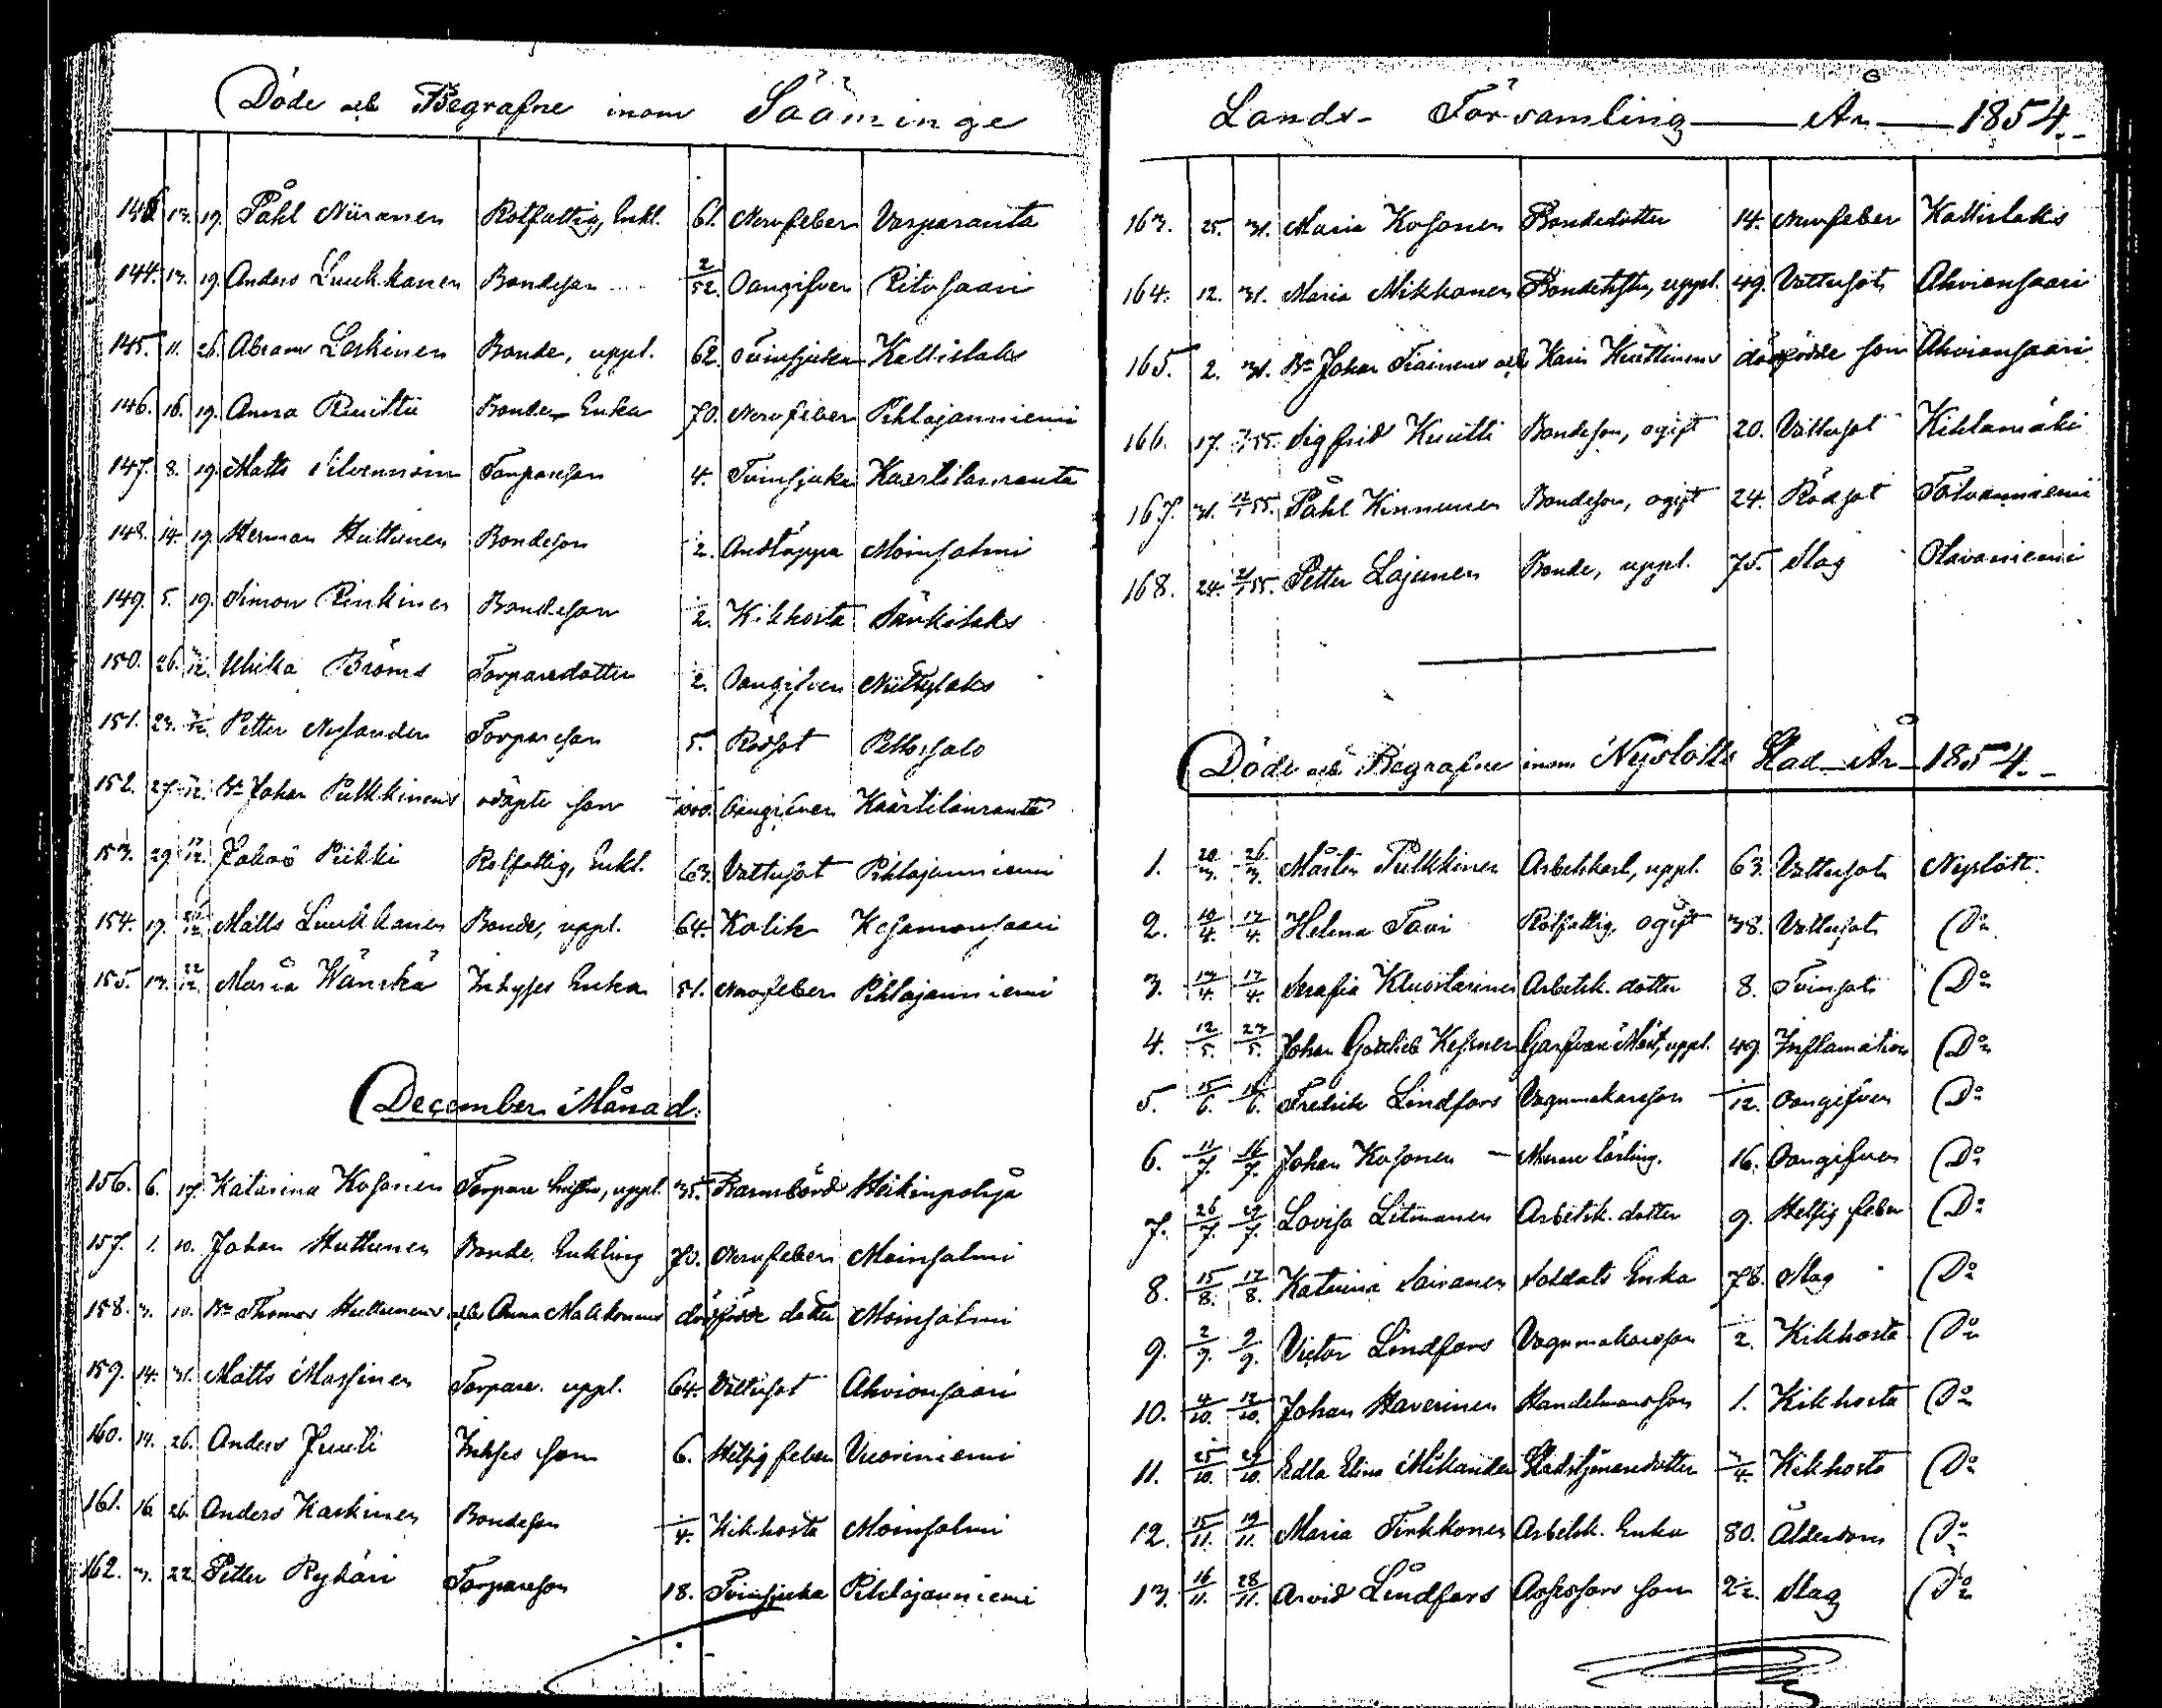 Döde och Begrafne inom Sääminge
143. 13. 19. Påhl Niiranen Rotfattig, Enkl. 61. Nervfeber Varparanta
144. 13. 19. Anders Luukkanen Bondeson 2/52. Oangifven Pitosaari
145. 11. 26. Abram Laskinen Bonde, uppl. 62. Tvinsjuka Kallislaks
146. 16. 19. Anna Ruuttu Bonde Enka 70. Nervfeber Pihlajanniemi
147. 8. 19. Matts Silvennoin Torpareson 4. Tvinsjuka Kaartilanranta
148. 14. 19. Herman Huttunen Bondeson 2. Andtäppa Moinsalmi
149. 5. 19. Simon Rinkinen Bondeson 2. Kikhosta Särkilaks
150. 26. Ulrika Broms Torparedotter 2. Oangifven Niittylaks
151. 23. Petter Nylander Torpareson 5. Rödsot Pellossalo
152. 27. Bn Johan Pulkkinens odöpte son Oangifven Kaartilanranta
153. 29. 17/12. Jakob Piikki Rotfattig, Enkl. 63. Vattusot Pihlajanniemi
154. 19. Matts Luukkanen Bonde, uppl. 64. Kolik Kesamonsaari
155. 13. 22/12. Maria Wänskä Inhyses Enka 51. Nervfeber Pihlajanniemi
December Månad.
156. 6. 17. Katarina Kosonen Torpare hustru, uppl. 35. Barnsbörd Heikinpohja
157. 1. 10. Johan Huttunen Bonde, Enkling 70. Nervfeber Moinsalmi
158. 3. 10. Bn Thomas Huttunens och Anna Malikonens dödfödde dotter Moinsalmi
159. 14. 31. Matts Massinen Torpare. uppl. 64. Vattusot Ahvionsaari
160. 14. 26. Anders Juuti Inhyses son 6. Hetsig feber Vuoriniemi
161. 16. 26. Anders Kaskinen Bondeson 1/4. Kikhosta Moinsalmi
162. 3. 22. Petter Ryhäri Torpareson 18. Tvinsjuka Pihlajanniemi
Lands- Församling — År — 1854.
163. 25. 31. Maria Kosonen Bondedotter 14. Nervfeber Kallislaks
164. 12. 31. Maria Mikkonen Bondehustru, uppl. 49. Vattusot Ahvionsaari
165. 2. 31. Bn Johan Tiainens och Karin Kuuttinens dödfödde son Ahvionsaari
166. 17. Sigfrid Kuutti Bondeson, ogift 20. Vattusot Kiklamäki
167. 31. Påhl Kinnunen Bondeson, ogift 24. Rödsot Tolvanniemi
168. 24. Petter Lajunen Bonde, uppl. 75. Slag Olavaniemi
Döde och Begrafne inom Nyslotts Stad År 1854.
1. 20/3. 26/3. Mårten Pulkkinen Arbetskarl, uppl. 63. Vattusot Nyslott.
2. 10/4. 17/4. Helena Tavi Rotfattig, ogift 38. Vattusot Do
3. 13/4. 17/4. Serafia Kluostarinen Arbetsk. dotter 8. Tvinsot Do
4. 12/5. 23/5. Johan Gottlieb Kessner Garfvare Mäst, uppl. 49. Inflamation Do
5. 15/6. 16/6. Fredrik Lindfors Vagnmakareson /12. Oangifven Do
6. 11/7. 16/7. Johan Kosonen Murare lärling. 16. Oangifven Do
7. 26/7. 29/7. Lovisa Litmanen Arbetsk. dotter 9. Hetsig feber Do
8. 15/8. 17/8. Katarina Sairanen Soldats Enka 78. Slag Do
9. 2/9. 9/9. Victor Lindfors Vagnmakareson 2. Kikhosta Do
10. 4/10. 12/10. Johan Haverinen Handelmansson 1. Kikhosta Do
11. 25/10. 29/10. Edla Elina Mikander Stadstjenaredotter 3/4. Kikhosta Do
12. 15/11. 19/11. Maria Tirkkonen Arbetsk. Enka 80. Ålderdom Do
13. 16/11. 28/11. Arvid Lindfors Assessors son 2½. Slag Do